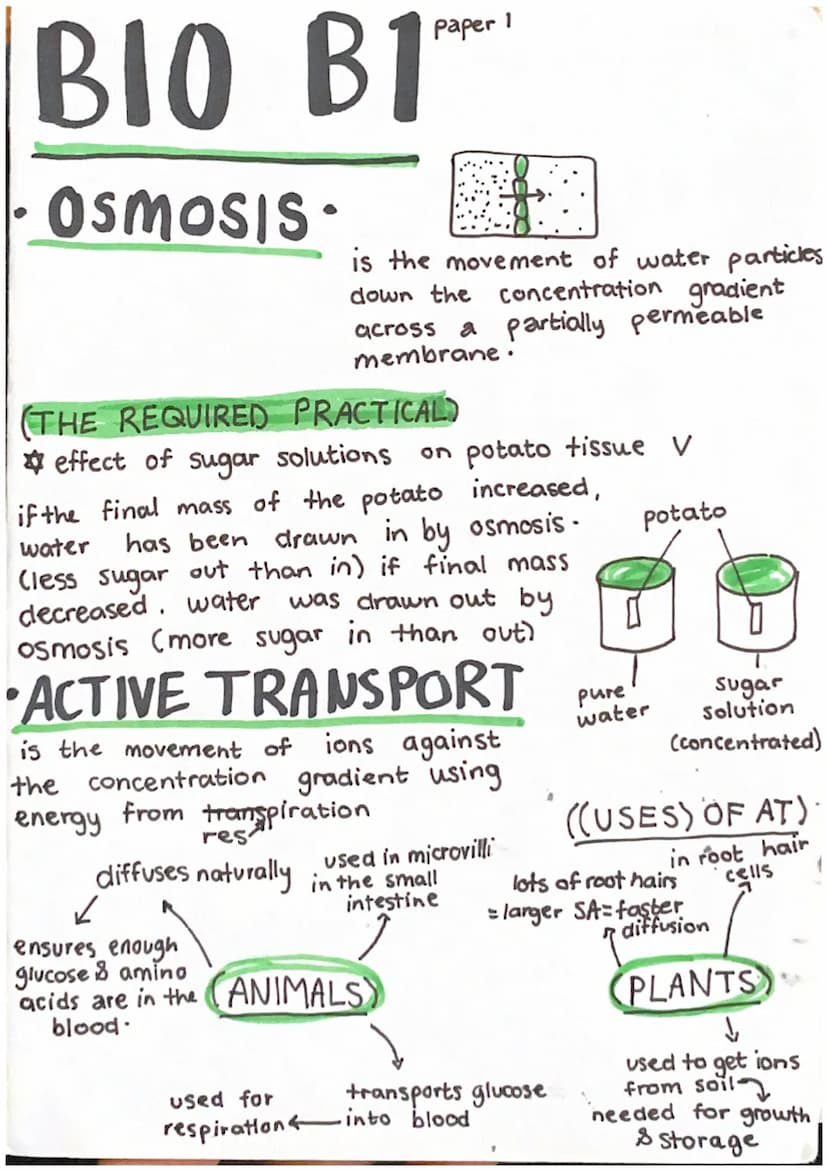 BIO B1 paper 1
· OSMOSIS ·
is the movement of water particles
down the concentration gradient
across a partially permeable
membrane.
(THE REQUIRED PRACTICAL)
effect of sugar solutions on potato tissue V
if the final mass of the potato increased,
water has been drawn in by osmosis.
(less sugar out than in) if final mass
decreased. water was drawn out by
osmosis (more sugar in than out)
potato
pure
water
sugar
solution
(concentrated)
· ACTIVE TRANSPORT
is the movement of ions against
the concentration gradient using
energy from transpiration
res
diffuses naturally
used in microvilli
in the small
intestine
ensures enough
glucose & amino
acids are in the
blood.
(ANIMALS)
transports glucose
into blood
used for
respiration
((USES) OF AT)
in root hair
cells
lots of root hairs
= larger SA = faster
diffusion
(PLANTS)
used to get ions
from soil
needed for growth
& storage